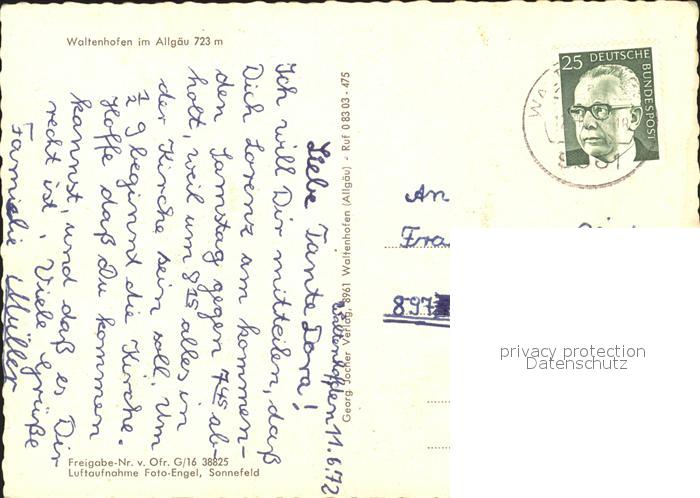 Waltenhofen im Allgäu 723 m
Waltenhofen 11.6.72
Liebe Tante Dora!
Ich will Dir mitteilen, daß
Dich Lorenz am kommen-
den Samstag gegen 7 45 ab-
holt, weil um 8 15 alles in
der Kirche sein soll. Um
½ 9 beginnt die Kirche.
Hoffe daß Du kommen
kannst, und daß es Dir
recht ist. Viele Grüße
Familie Müller
Freigabe-Nr. v. Ofr. G/16 38825
Luftaufnahme Foto-Engel, Sonnefeld
Georg Jocher Verlag, 8961 Waltenhofen (Allgäu) - Ruf 0 83 03 - 475
25 DEUTSCHE
BUNDESPOST
An
897
privacy protection
Datenschutz